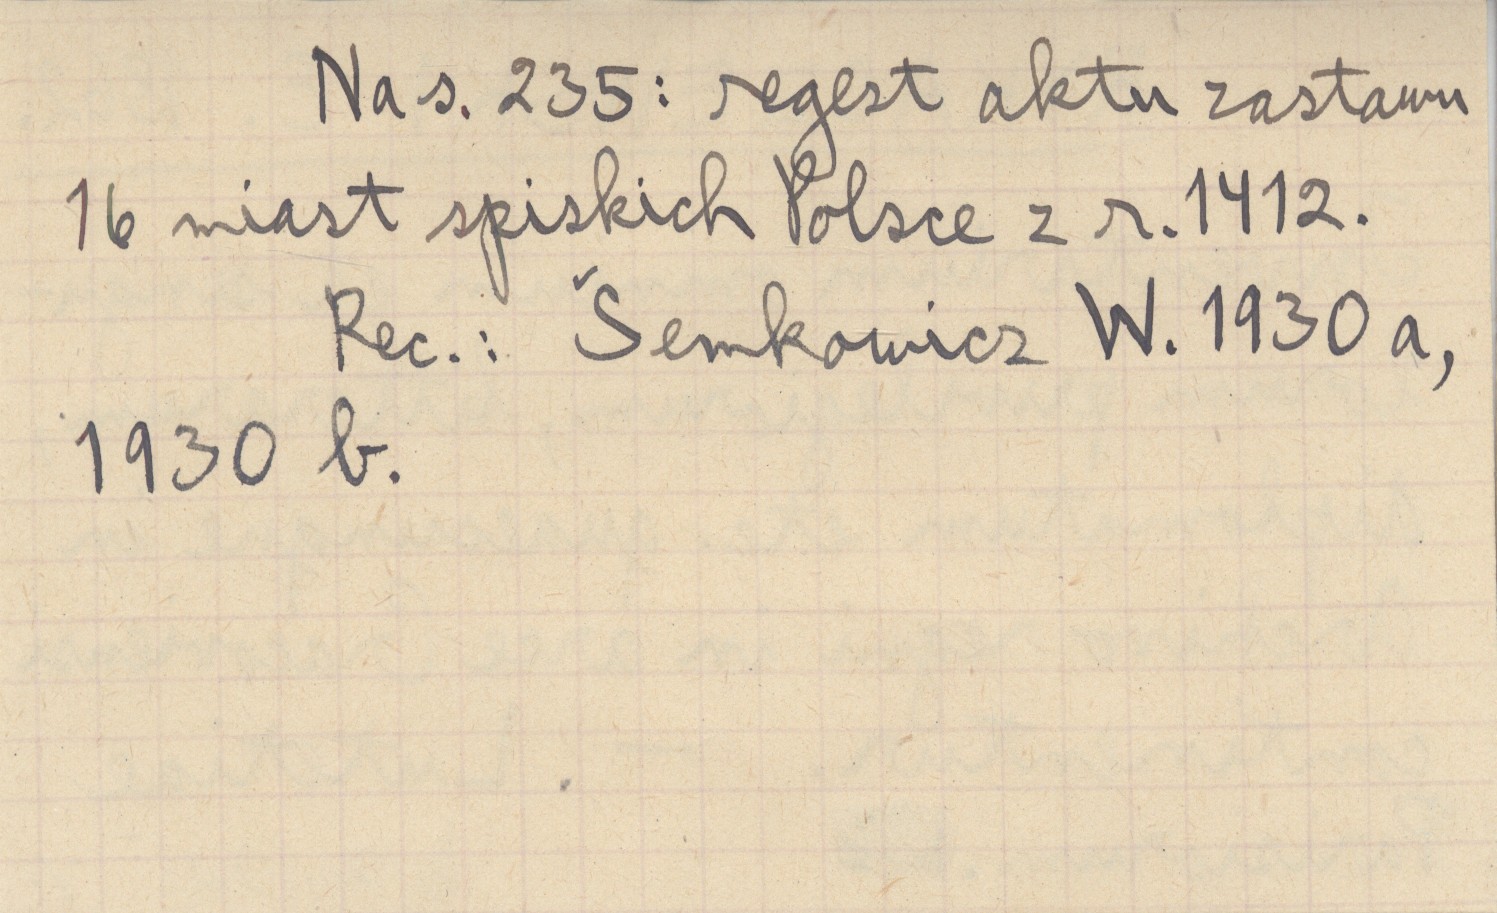 Na s. 235: regest aktu zastawu
16 miast spiskich Polsce z r. 1412.
Rec.: Šemkowicz W. 1930 a,
1930 b.